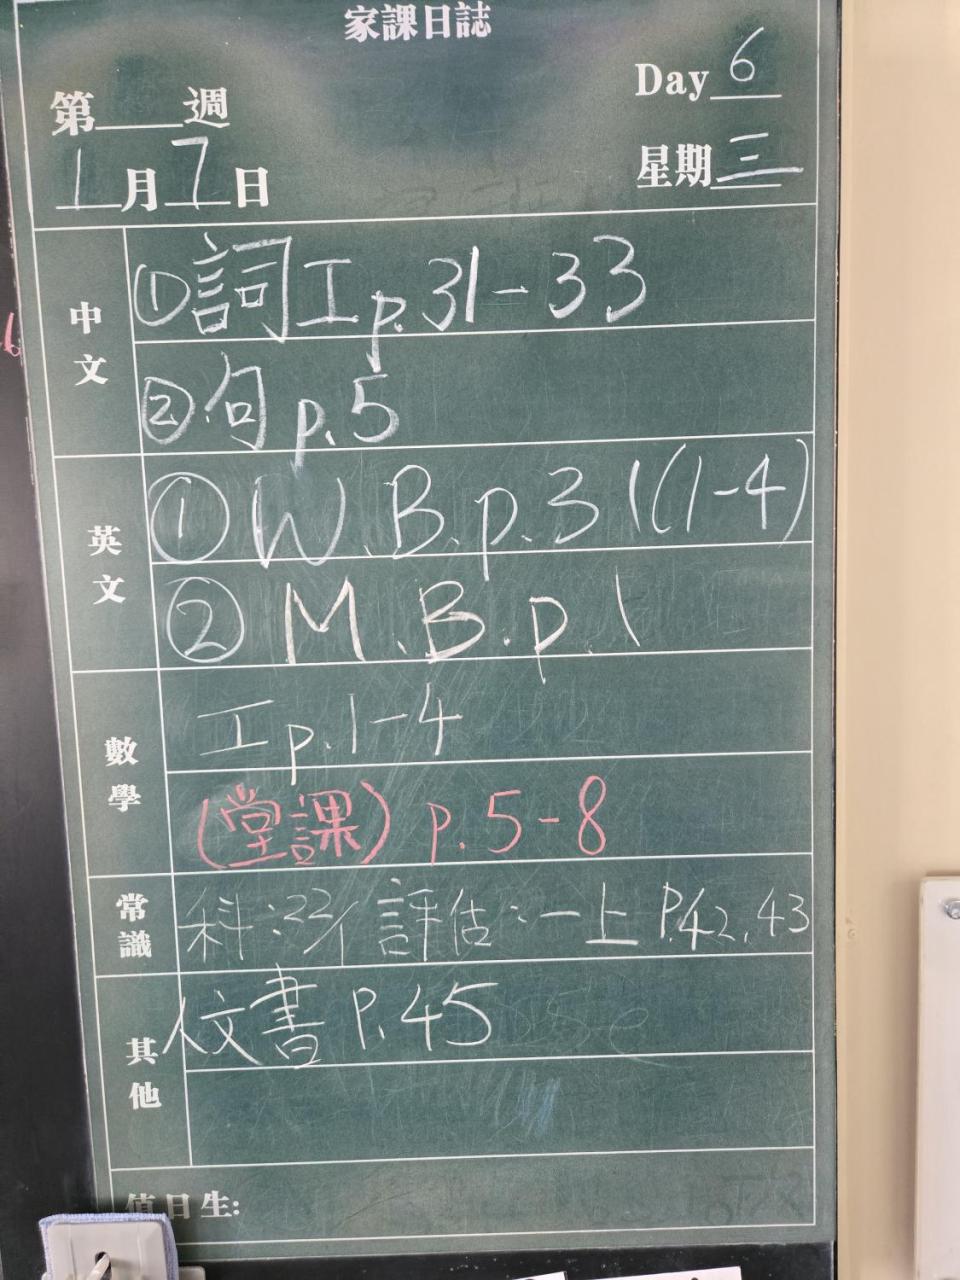 家課日誌
Day 6
第___週
1月7日
星期三
中文
①詞工p.31-33
②句p.5
英文
①W.B.p.31(1-4)
②M.B.p.1
數學
工p.1-4
(堂課) p.5-8
常識
科: 評估:一上 P.42,43
其他
書 P.45
值日生: